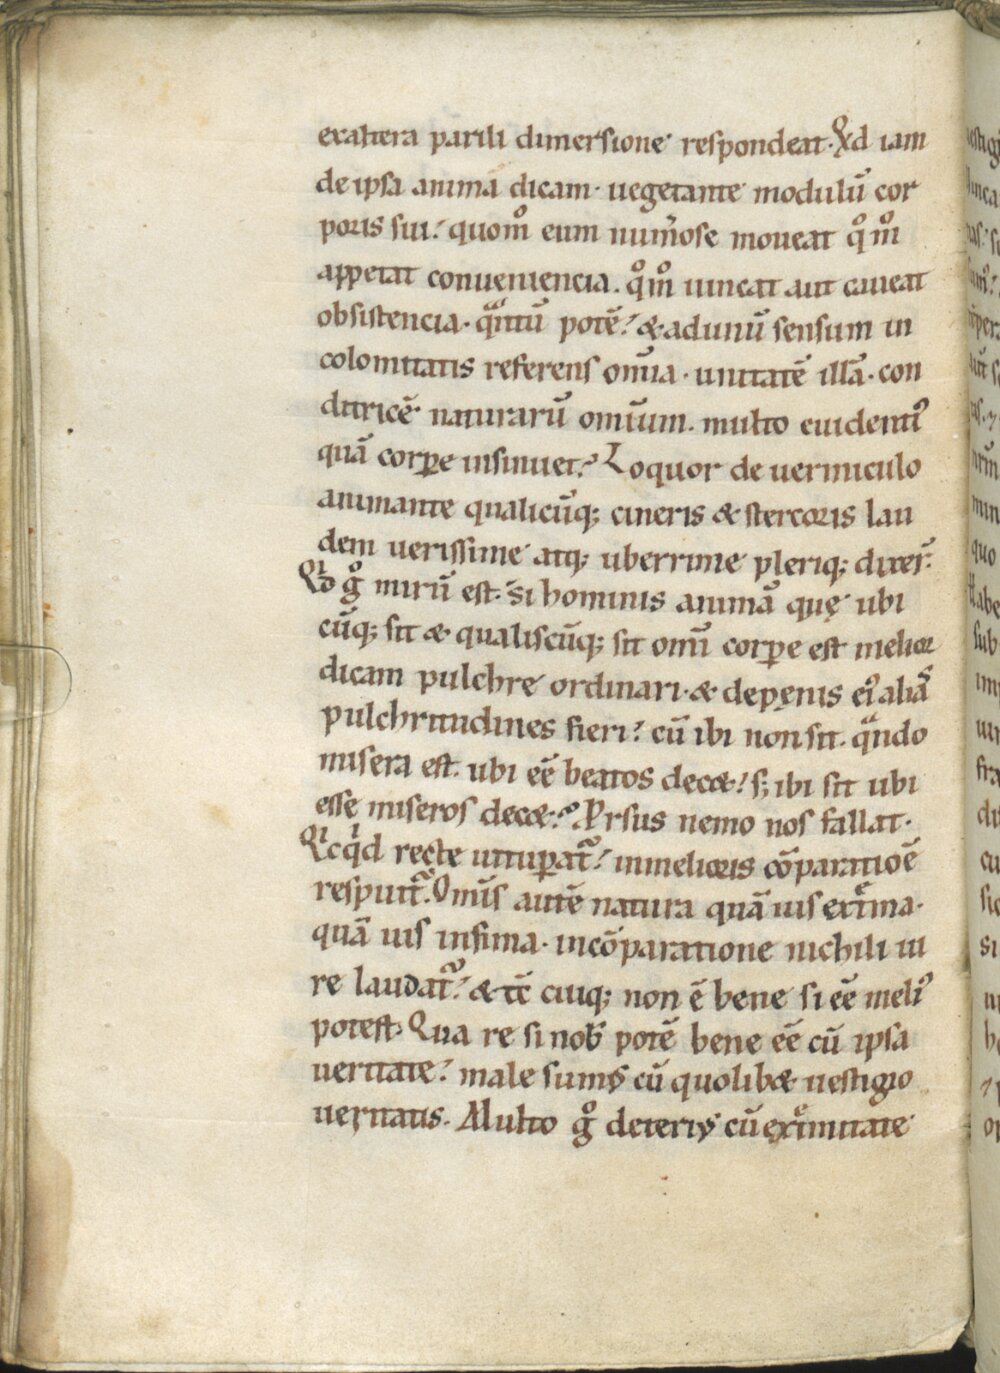 exaltera parili dimensione respondeat. Qd iam
de ipsa anima dicam. uegetante modulū cor
poris sui. quom̊ eum num̄ose moueat q̊m̊
appetat conueniencia. q̊m̊ uincat aut caueat
obsistencia. qᵃntū potē? & adunū sensum in
colomitatis referens om̄ia. unitatē illā. con
ditricē naturarū omīum. multo euidentiꝰ
quā corꝑe insinuet? Loquor de uermiculo
animante qualicūq; cineris & stercoris lau
dem uerissime atq; uberrime pleriq; dixer̄.
Qd g̊ mirū est. si hominis animā quę ubi
cūq; sit & qualiscūq; sit omī corꝑe est melior
dicam pulchre ordinari. & depęnis eiꝰ aliaˢ
pulchritudines fieri? cū ibi non sit. qᵃndo
misera est. ubi eē beatos dec&? s; ibi sit ubi
esse miseros dec&? Ꝓrsus nemo nos fallat.
Qicqⁱd recte uituꝑat᷑? inmelioris cōparatioē
respuit᷑. Omīs autē natura quāuis ext̄ma.
quā uis infima. incōparatione nichili iu
re laudat᷑? & tē cuiq; non ē bene si eē meliꝰ
potest. Qua re si nob̄ potē bene eē cū ipsa
ueritate? male sumꝰ cū quolib& uestigio
ueritatis. Multo g̊ deteriꝰ cū ext̄mitate